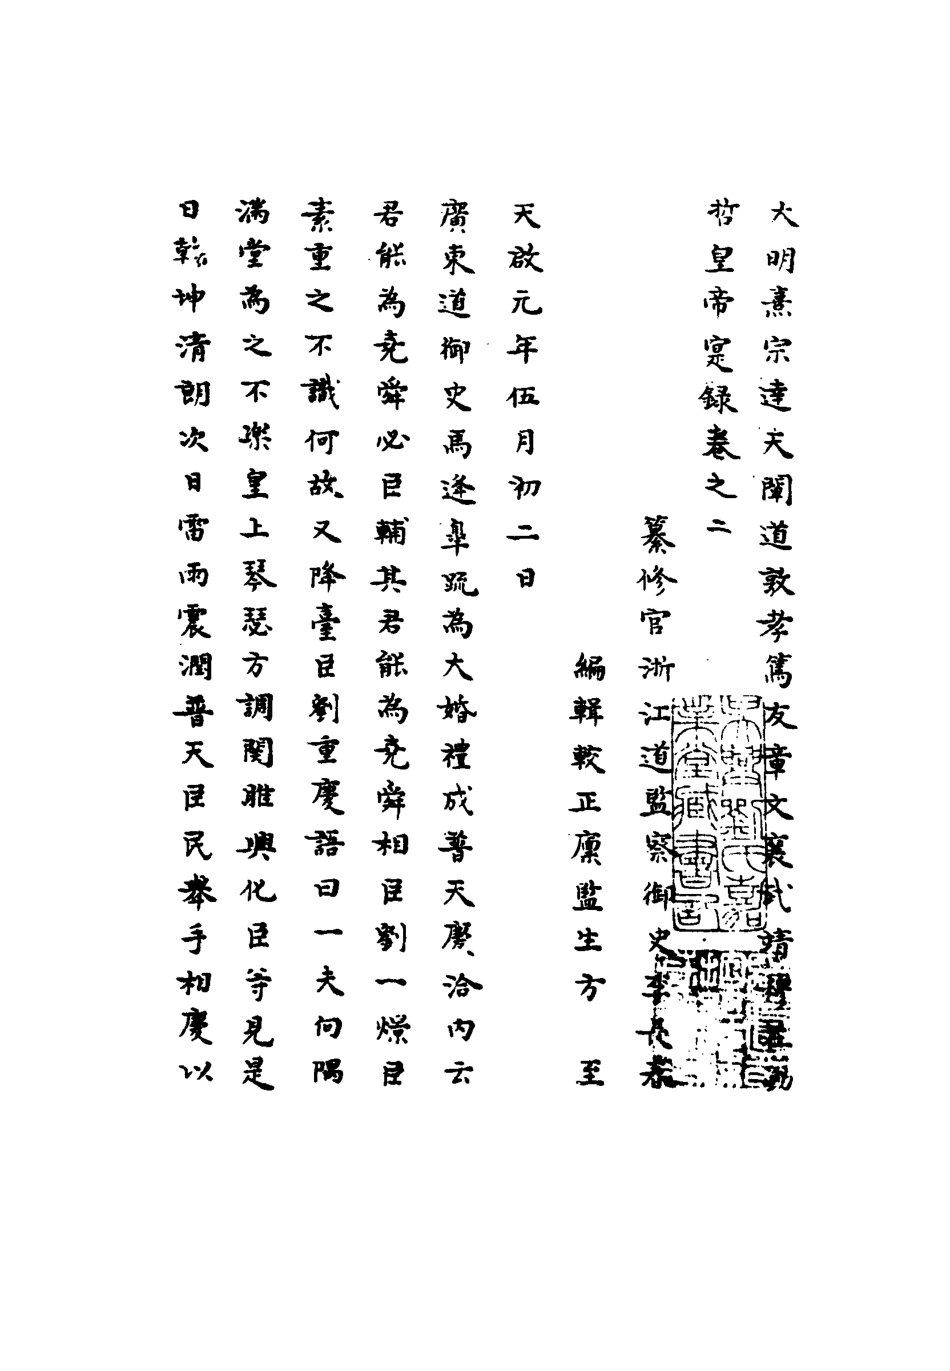 大明熹宗達天闡道敦孝篤友章文襄武靖穆莊勤
哲皇帝寔録卷之二
纂修官浙江道監察御史李長春
編輯較正廩監生方　至
天啟元年伍月初二日
廣東道御史馬逢皐疏為大婚禮成普天慶洽內云
君能為堯舜必臣輔其君能為堯舜相臣劉一燝臣
素重之不識何故又降臺臣劉重慶語曰一夫向隅
滿堂為之不樂皇上琴瑟方調関雎興化臣等見是
日乾坤清朗次日雷雨震潤普天臣民舉手相慶以
吳興劉氏嘉
業堂藏書記